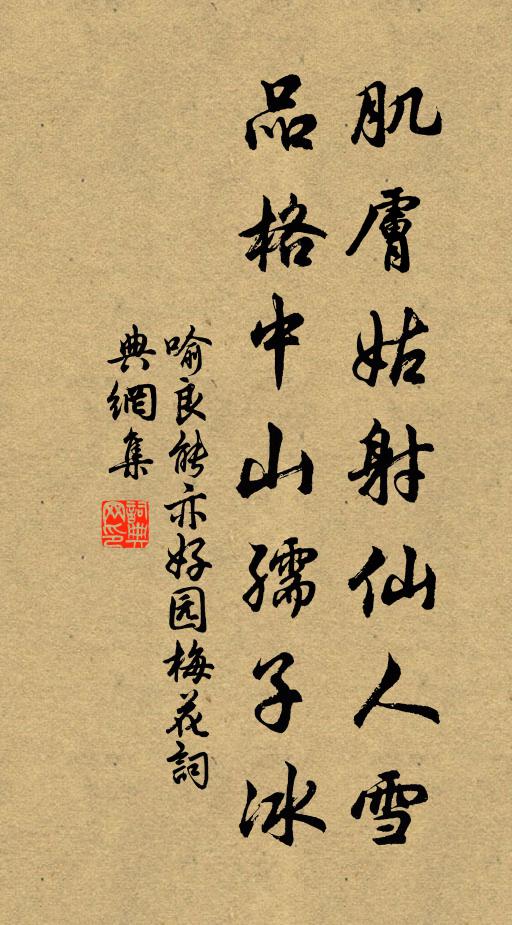 肌膚姑射仙人雪
品格中山孺子冰
喻良能亦好园梅花詞
典網集
詞典網印